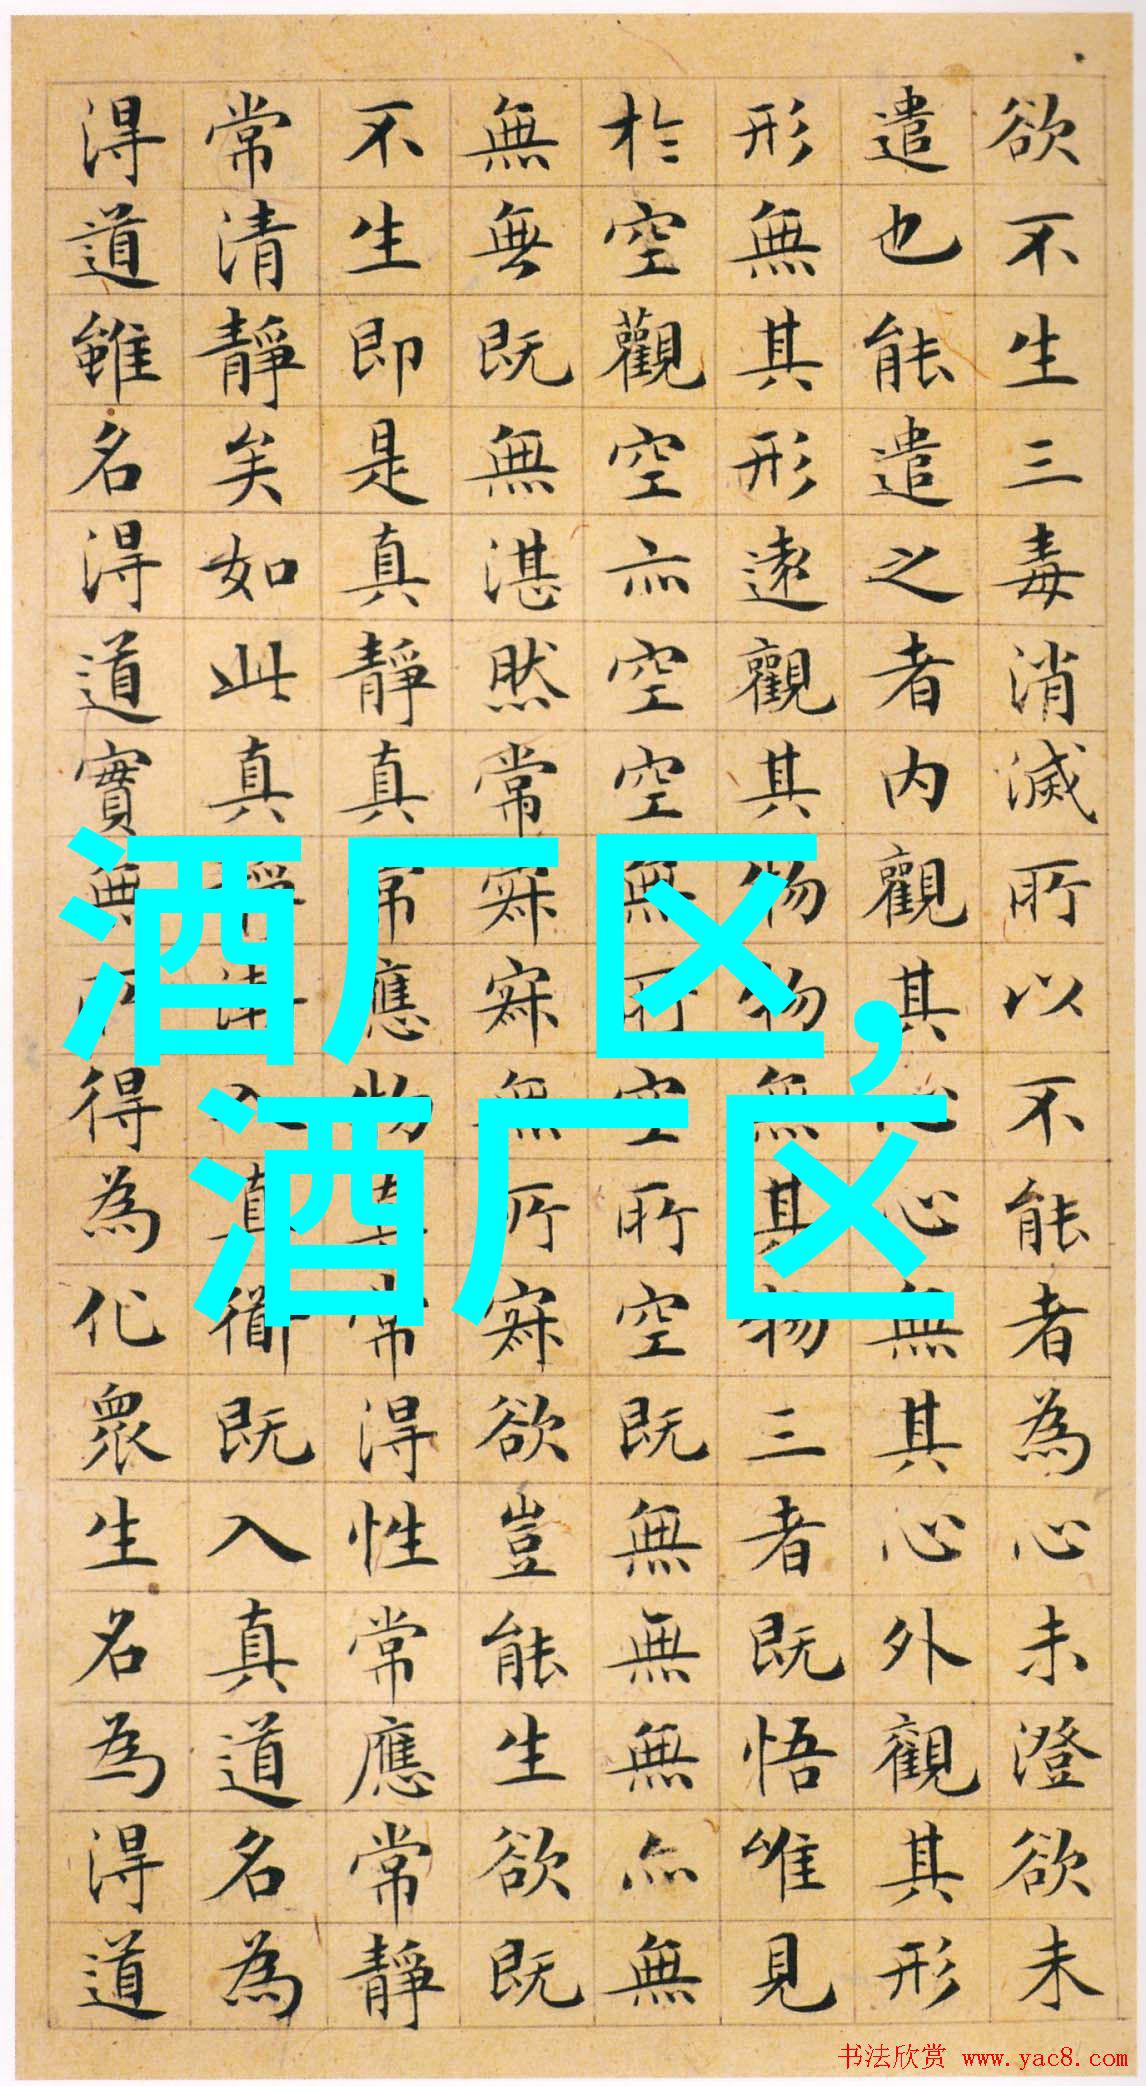 欲不生三毒消滅所以不能者為心未澄欲未
遣也能遣之者内觀其心心無其心外觀其形
形無其形遠觀其物物無其物三者既悟唯見
於空觀空亦空空無所空所空既無無無亦無
無無既無湛然常寂寂無所寂欲豈能生欲既
不生即是真靜真常應物真常得性常應常靜
常清靜矣如此真靜漸入真衜既入真道名為
得道雖名得道實無所得為化眾生名為得道
酒厂区,
酒厂区
书法欣赏 www.yac8.com